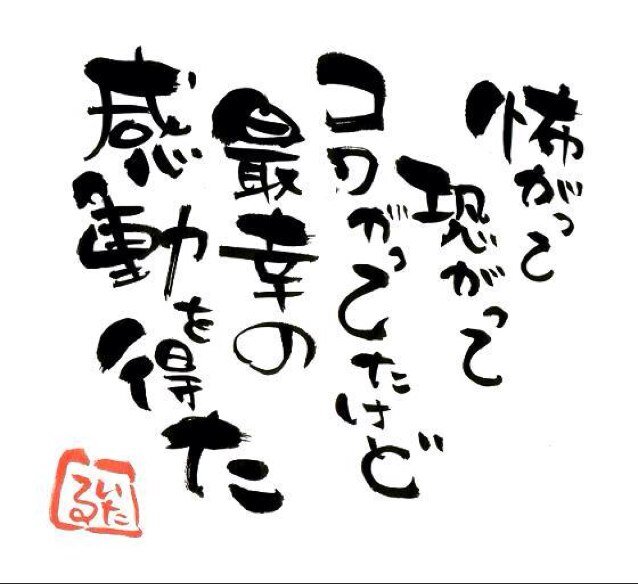 怖がって
恐がって
コワがってたけど
最幸の
感動を得た
いた
る